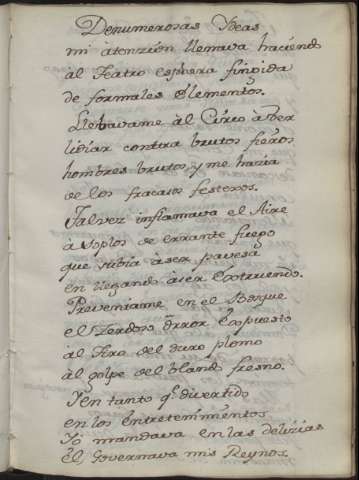 Denumerosas Ydeas
mi atenzion llenava haciendo
al Teatro esphera fingida
de formales Elementos.
Llebavame al Circo a ver
lidiar contra brutos fieros
hombres brutos, y me hazia
de los fracasos festexos.
Talvez inflamava el Aire
a soplos de errante fuego
que subia a ser pavesa
en llegando a ser Extruendo.
Preveniame en el Bosque
el Zerdoso error Expuesto
al Tiro del duro plomo
al golpe del blando fresno.
Yen tanto q.e divertido
en los Entretenimientos
Yo mandava en las delizias
El Governava mis Reynos.